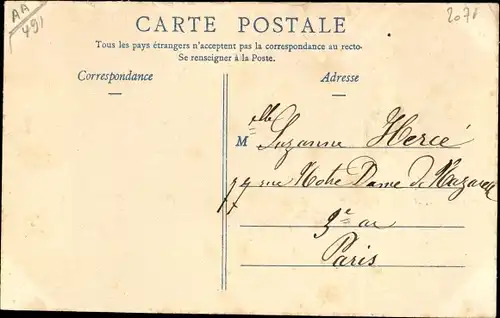 AA
491
2071
CARTE POSTALE
Tous les pays étrangers n'acceptent pas la correspondance au recto-
Se renseigner à la Poste.
Correspondance
Adresse
Mlle Suzanne Hercé
rue Notre Dame de Nazareth
3e ar
Paris